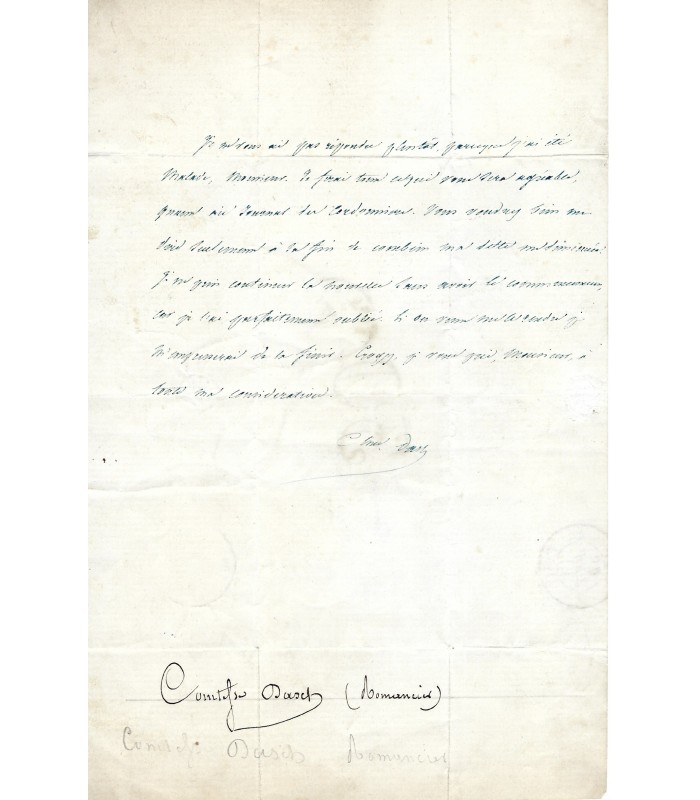 Je ne vous ai pas répondu plutôt, parceque j'ai été
Malade, Monsieur. Je ferai tout ce qui vous sera agréable,
quant au Journal du Cordonnier. Vous voudrez bien me
dire seulement à la fin de combien ma dette est diminuée.
je ne puis continuer la nouvelle sans avoir le commencement,
car je l'ai parfaitement oublié. Si on veut me le rendre je
m'occuperai de la finir. Croyez, je vous prie, Monsieur, à
toute ma considération.
Ctesse Dash
Comtesse Dasch (Romancier)
Comtesse Dasch Romancier